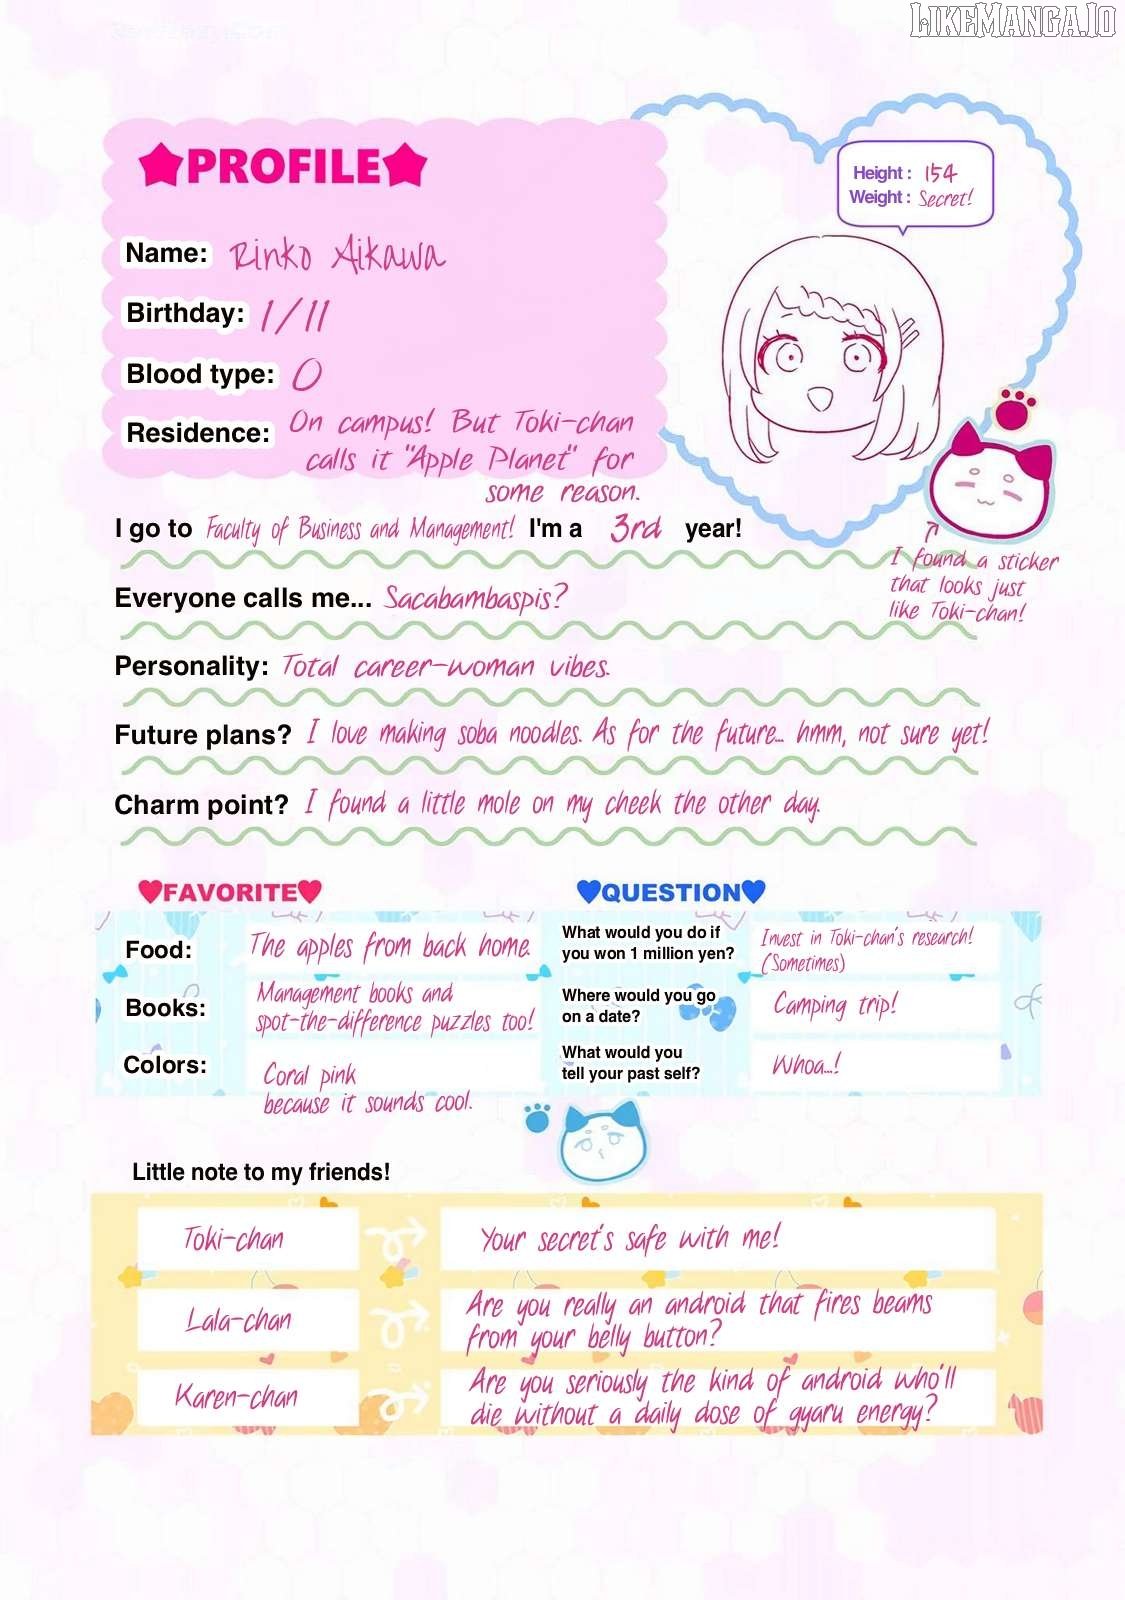 LIKEMANGA.IO
★PROFILE★
Name: Rinko Aikawa
Birthday: 1/11
Blood type: O
Residence: On campus! But Toki-chan
calls it "Apple Planet" for
some reason.
Height: 154
Weight: Secret!
I found a sticker
that looks just
like Toki-chan!
I go to Faculty of Business and Management! I'm a 3rd year!
Everyone calls me... Sacabambaspis?
Personality: Total career-woman vibes.
Future plans? I love making soba noodles. As for the future... hmm, not sure yet!
Charm point? I found a little mole on my cheek the other day.
♥FAVORITE♥
Food: The apples from back home.
Books: Management books and
spot-the-difference puzzles too!
Colors: Coral pink
because it sounds cool.
♥QUESTION♥
What would you do if
you won 1 million yen?
Invest in Toki-chan's research!
(Sometimes)
Where would you go
on a date?
Camping trip!
What would you
tell your past self?
Whoa...!
Little note to my friends!
Toki-chan
Your secret's safe with me!
Lala-chan
Are you really an android that fires beams
from your belly button?
Karen-chan
Are you seriously the kind of android who'll
die without a daily dose of gyaru energy?